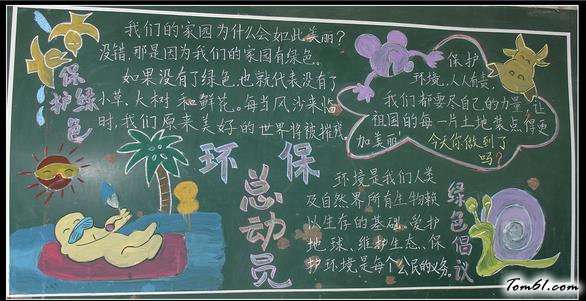 保护绿色
我们的家园为什么会如此美丽?
没错,那是因为我们的家园有绿色。
如果没有了绿色,也就代表没有了
小草、大树和鲜花。每当风沙来临
时,我们原来美好的世界将被摧残
保护
环境,人人有责,
我们都要尽自己的力量,让
祖国的每一片土地装点得更
加美丽!
今天你做到了
吗?
环保
总动员
环境是我们人类
及自然界所有生物赖
以生存的基础,爱护
地球、维护生态、保
护环境是每个公民的义务。
绿色倡议
Tom61.com